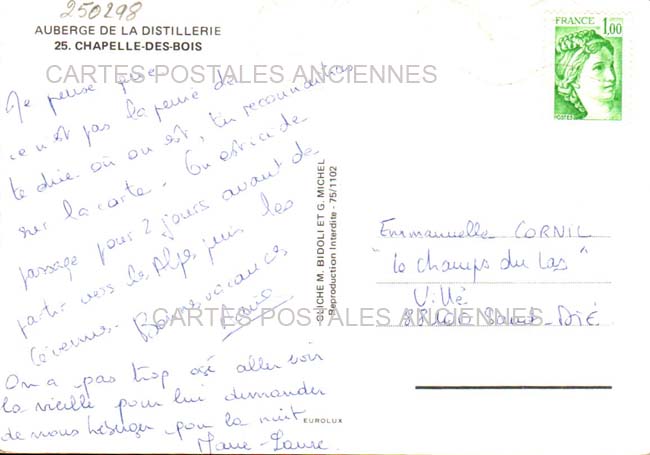 250298
AUBERGE DE LA DISTILLERIE
25. CHAPELLE-DES-BOIS
FRANCE
1,00
POSTES
CARTES POSTALES ANCIENNES
Je pense que
ce n'est pas la peine de
te dire où on est, tu reconnaitras
sur la carte. On est ici de
passage pour 2 jours avant de
partir vers les Alpes, puis les
Cévennes. Bonnes vacances
CARTES POSTALES ANCIENNES
On a pas trop osé aller voir
la vieille pour lui demander
de nous héberger pour la nuit
Marie-Laure.
CLICHE M. BIDOLI ET G. MICHEL
Reproduction Interdite - 75/1102
EUROLUX
Emmanuelle CORNIL
"10 champs du Las"
Villé
88100 Saint-Dié